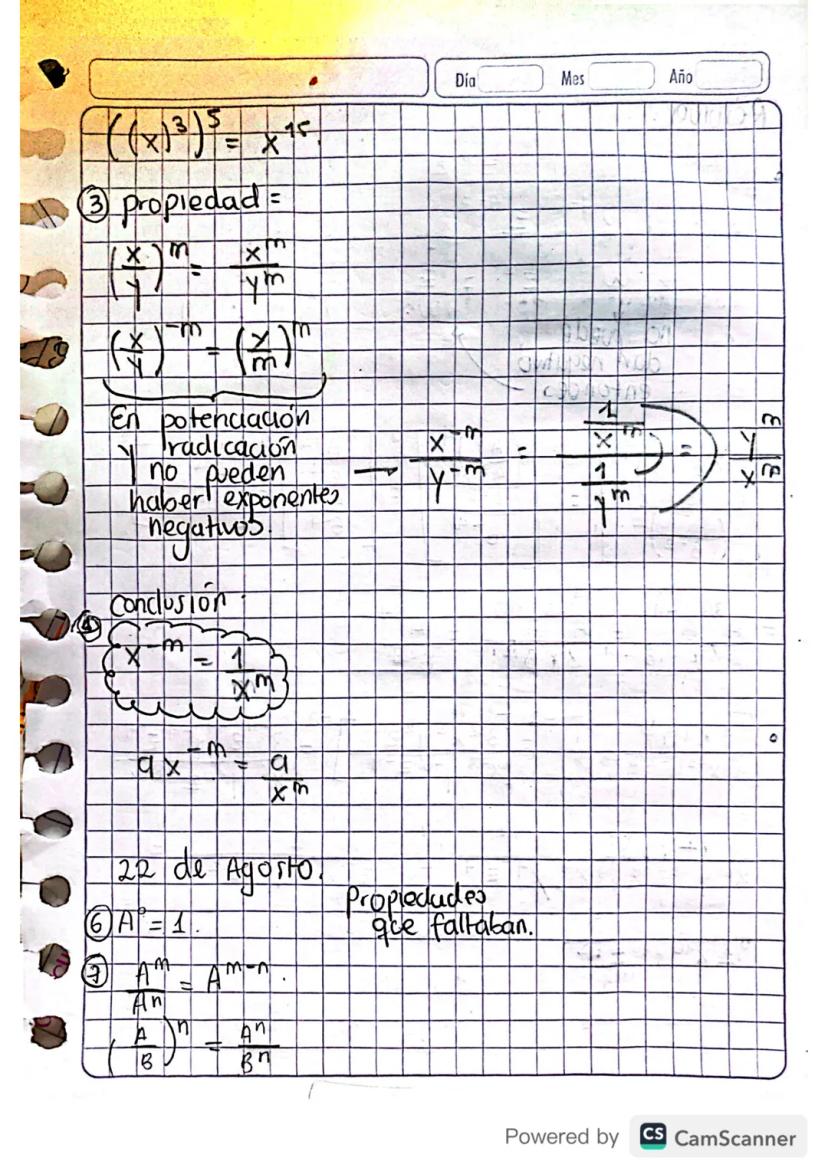 Día Mes Año
((x)³)⁵ = x¹⁵.
③ propiedad =
(x/y)^m = x^m/y^m
(x/y)^-m = (y/m)^m
En potenciación
y radicación
no pueden
haber exponentes
negativos.
→ x^-m/y^-m = (1/x^m)/(1/y^m) = y^m/x^m
conclusión
④ x^-m = 1/x^m
ax^-m = a/x^m
22 de Agosto.
Propiedades
que faltaban.
⑥ A⁰ = 1.
⑦ A^m/A^n = A^m-n.
(A/B)^n = A^n/B^n
Powered by CS CamScanner